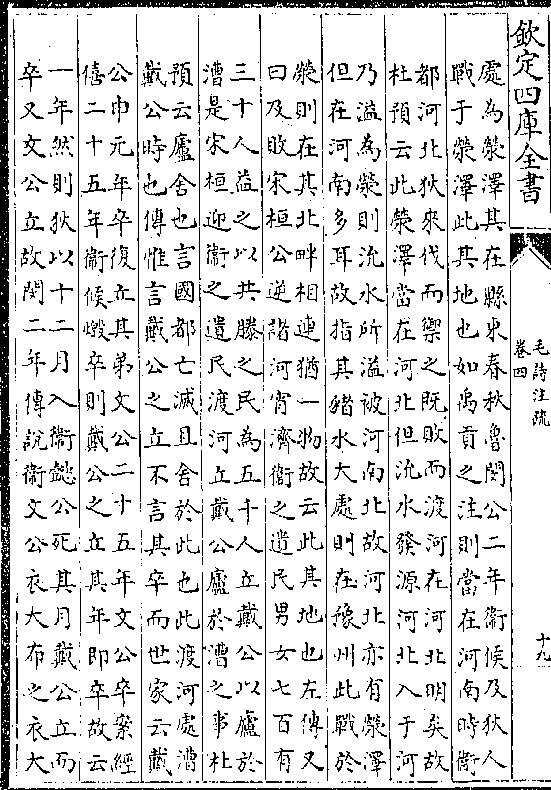 欽定四庫全書
毛詩注疏
卷四
十九
處為滎澤其在縣東春秋魯閔公二年衛侯及狄人
戰于滎澤此其地也如禹貢之注則當在河南時衛
都河北狄來伐而禦之既敗而渡河在河北明矣故
杜預云此滎澤當在河北但沇水發源河北入于河
乃溢為滎則沇水所溢被河南北故河北亦有滎澤
但在河南多耳故指其豬水大處則在豫州此戰於
滎則在其北畔相連猶一物故云此其地也左傳又
曰及敗宋桓公逆諸河宵濟衛之遺民男女七百有
三十人益之以共滕之民為五千人立戴公以廬於
漕是宋桓迎衛之遺民渡河立戴公廬於漕之事杜
預云廬舍也言國都亡滅且舍於此也此渡河處漕
戴公時也傳惟言戴公之立不言其卒而世家云戴
公申元年卒復立其弟文公二十五年文公卒案經
僖二十五年衛侯燬卒則戴公之立其年即卒故云
一年然則狄以十二月入衛懿公死其月戴公立而
卒又文公立故閔二年傳說衛文公衣大布之衣大